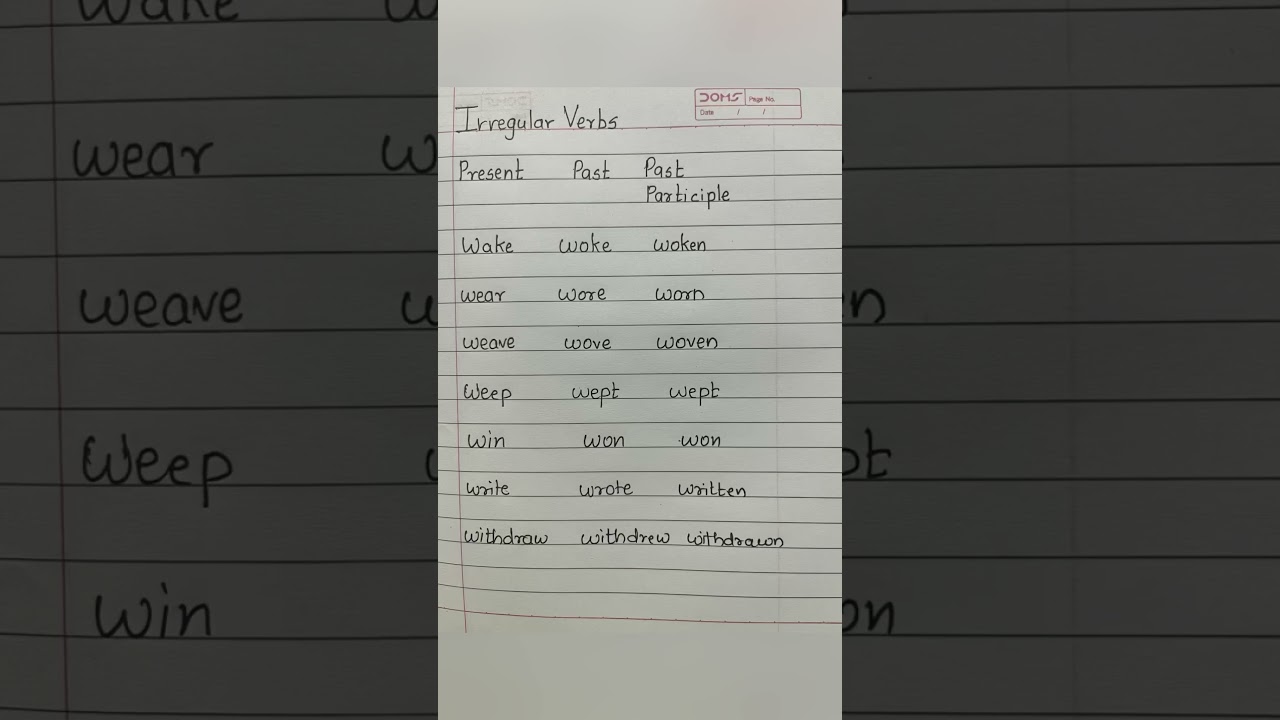 DOMS Page No.
Date / /
Irregular Verbs
Present Past Past
Participle
Wake woke woken
wear wore worn
weave wove woven
Weep wept wept
win won won
write wrote written
withdraw withdrew withdrawn
wake
wear
weave
Weep
win